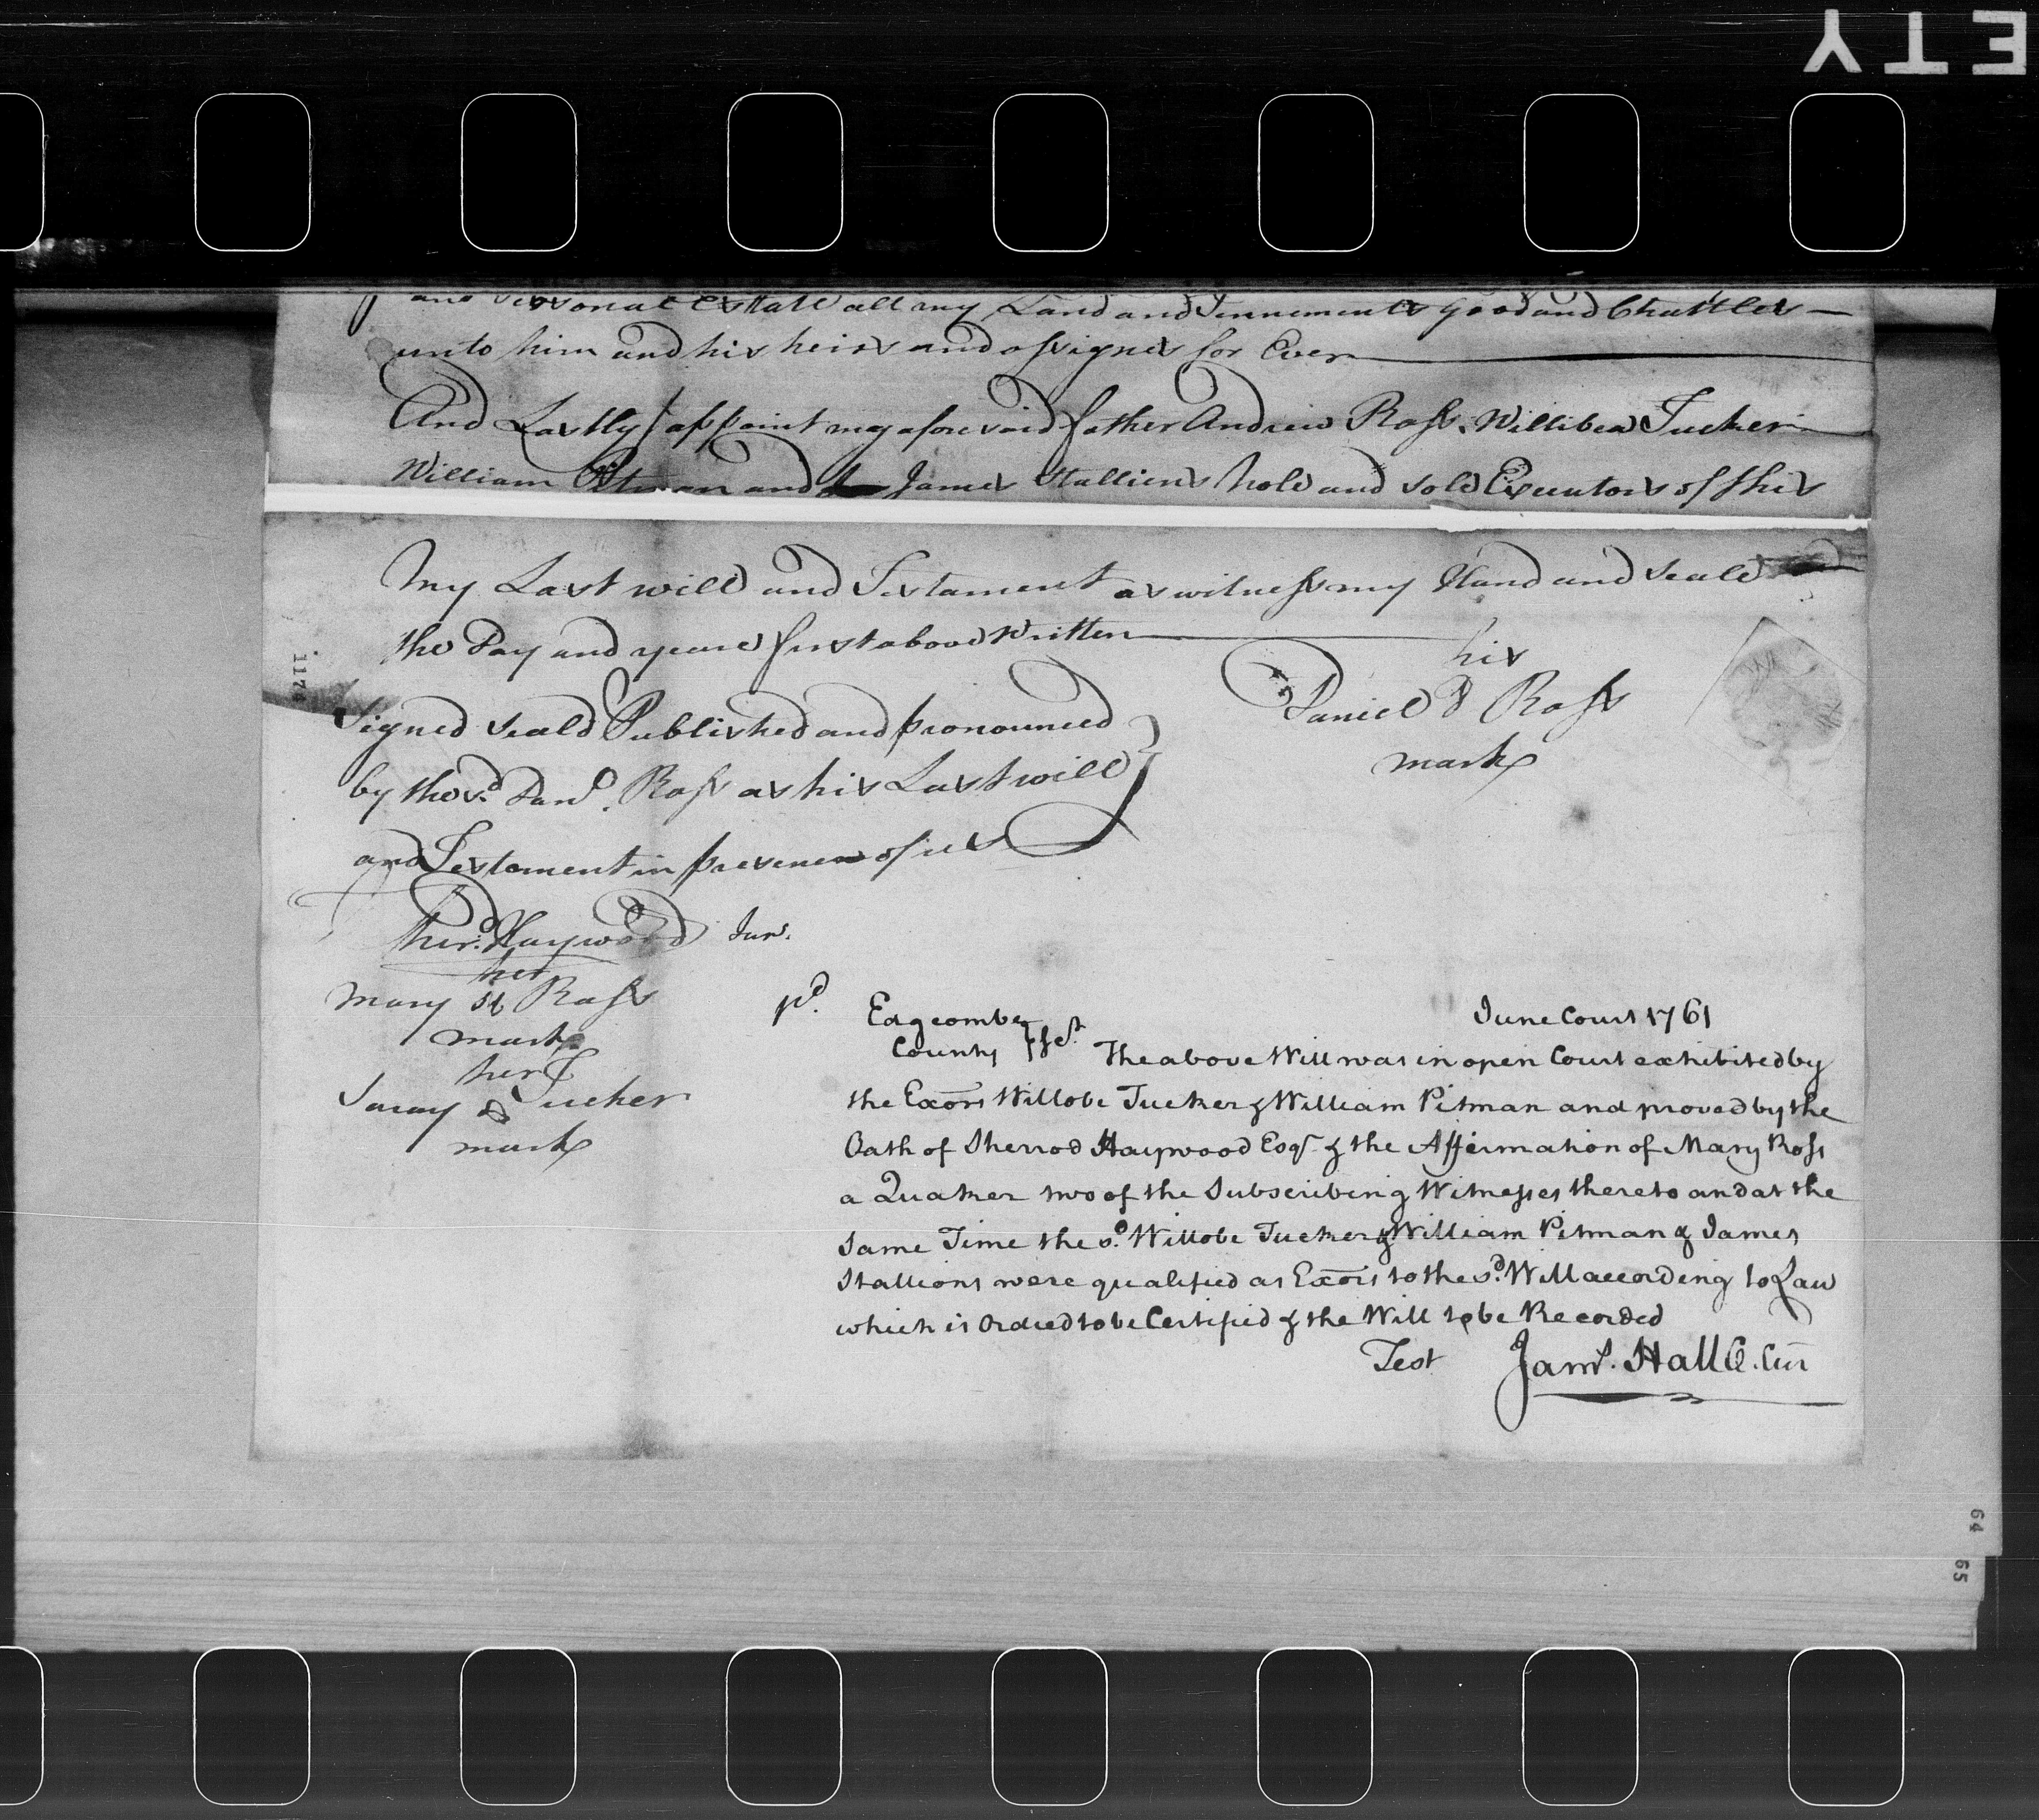 ETY
and personal Estate all my Land and Tennements Good and Chattles
unto him and his heirs and assignes for Ever
And Lastly I appoint my aforesaid father Andrew Ross, Willibea Tucker
William Pitman and James Stallions hole and sole Executors of this
My Last will and Testament as witness my Hand and Seale
the Day and yeare first aboove Written
his
Daniel D Ross
mark
Signed Seald Published and pronounced
by the sd. Danl. Ross as his Last will
and Testament in presence of us
Sherd. Haywood Junr.
her
Mary M Ross
mark
her
Saray S Tucker
mark
pd.
Edgcombe
County } Sct.
June Court 1761
The above Will was in open Court exhibited by
the Exors Willobe Tucker & William Pitman and proved by the
Oath of Sherrod Haywood Esqr. & the Affirmation of Mary Ross
a Quaker two of the Subscribing Witnesses thereto and at the
same Time the sd. Willobe Tucker & William Pitman & James
Stallions were qualified as Exors to the sd. Will according to Law
which is Ordred to be Certified & the Will to be Recorded
Test Jams. Hall C. Cur
117
64
65